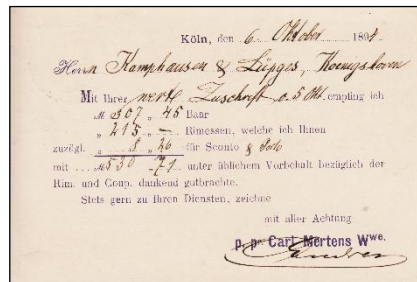 Köln, den 6. Oktober 1894
Herrn Kamphausen & Lüpges, Koenigshoven
Mit Ihrer werth. Zuschrift v. 5 Okt. empfing ich
M 307 „ 45 Baar
„ 215 „ — Rimessen, welche ich Ihnen
zuzügl. „ 8 „ 26 für Sconto & Porto
mit M 530 „ 71 unter üblichem Vorbehalt bezüglich der
Rim. und Coup. dankend gutbrachte.
Stets gern zu Ihren Diensten, zeichne
mit aller Achtung
p. pa. Carl Mertens Wwe.